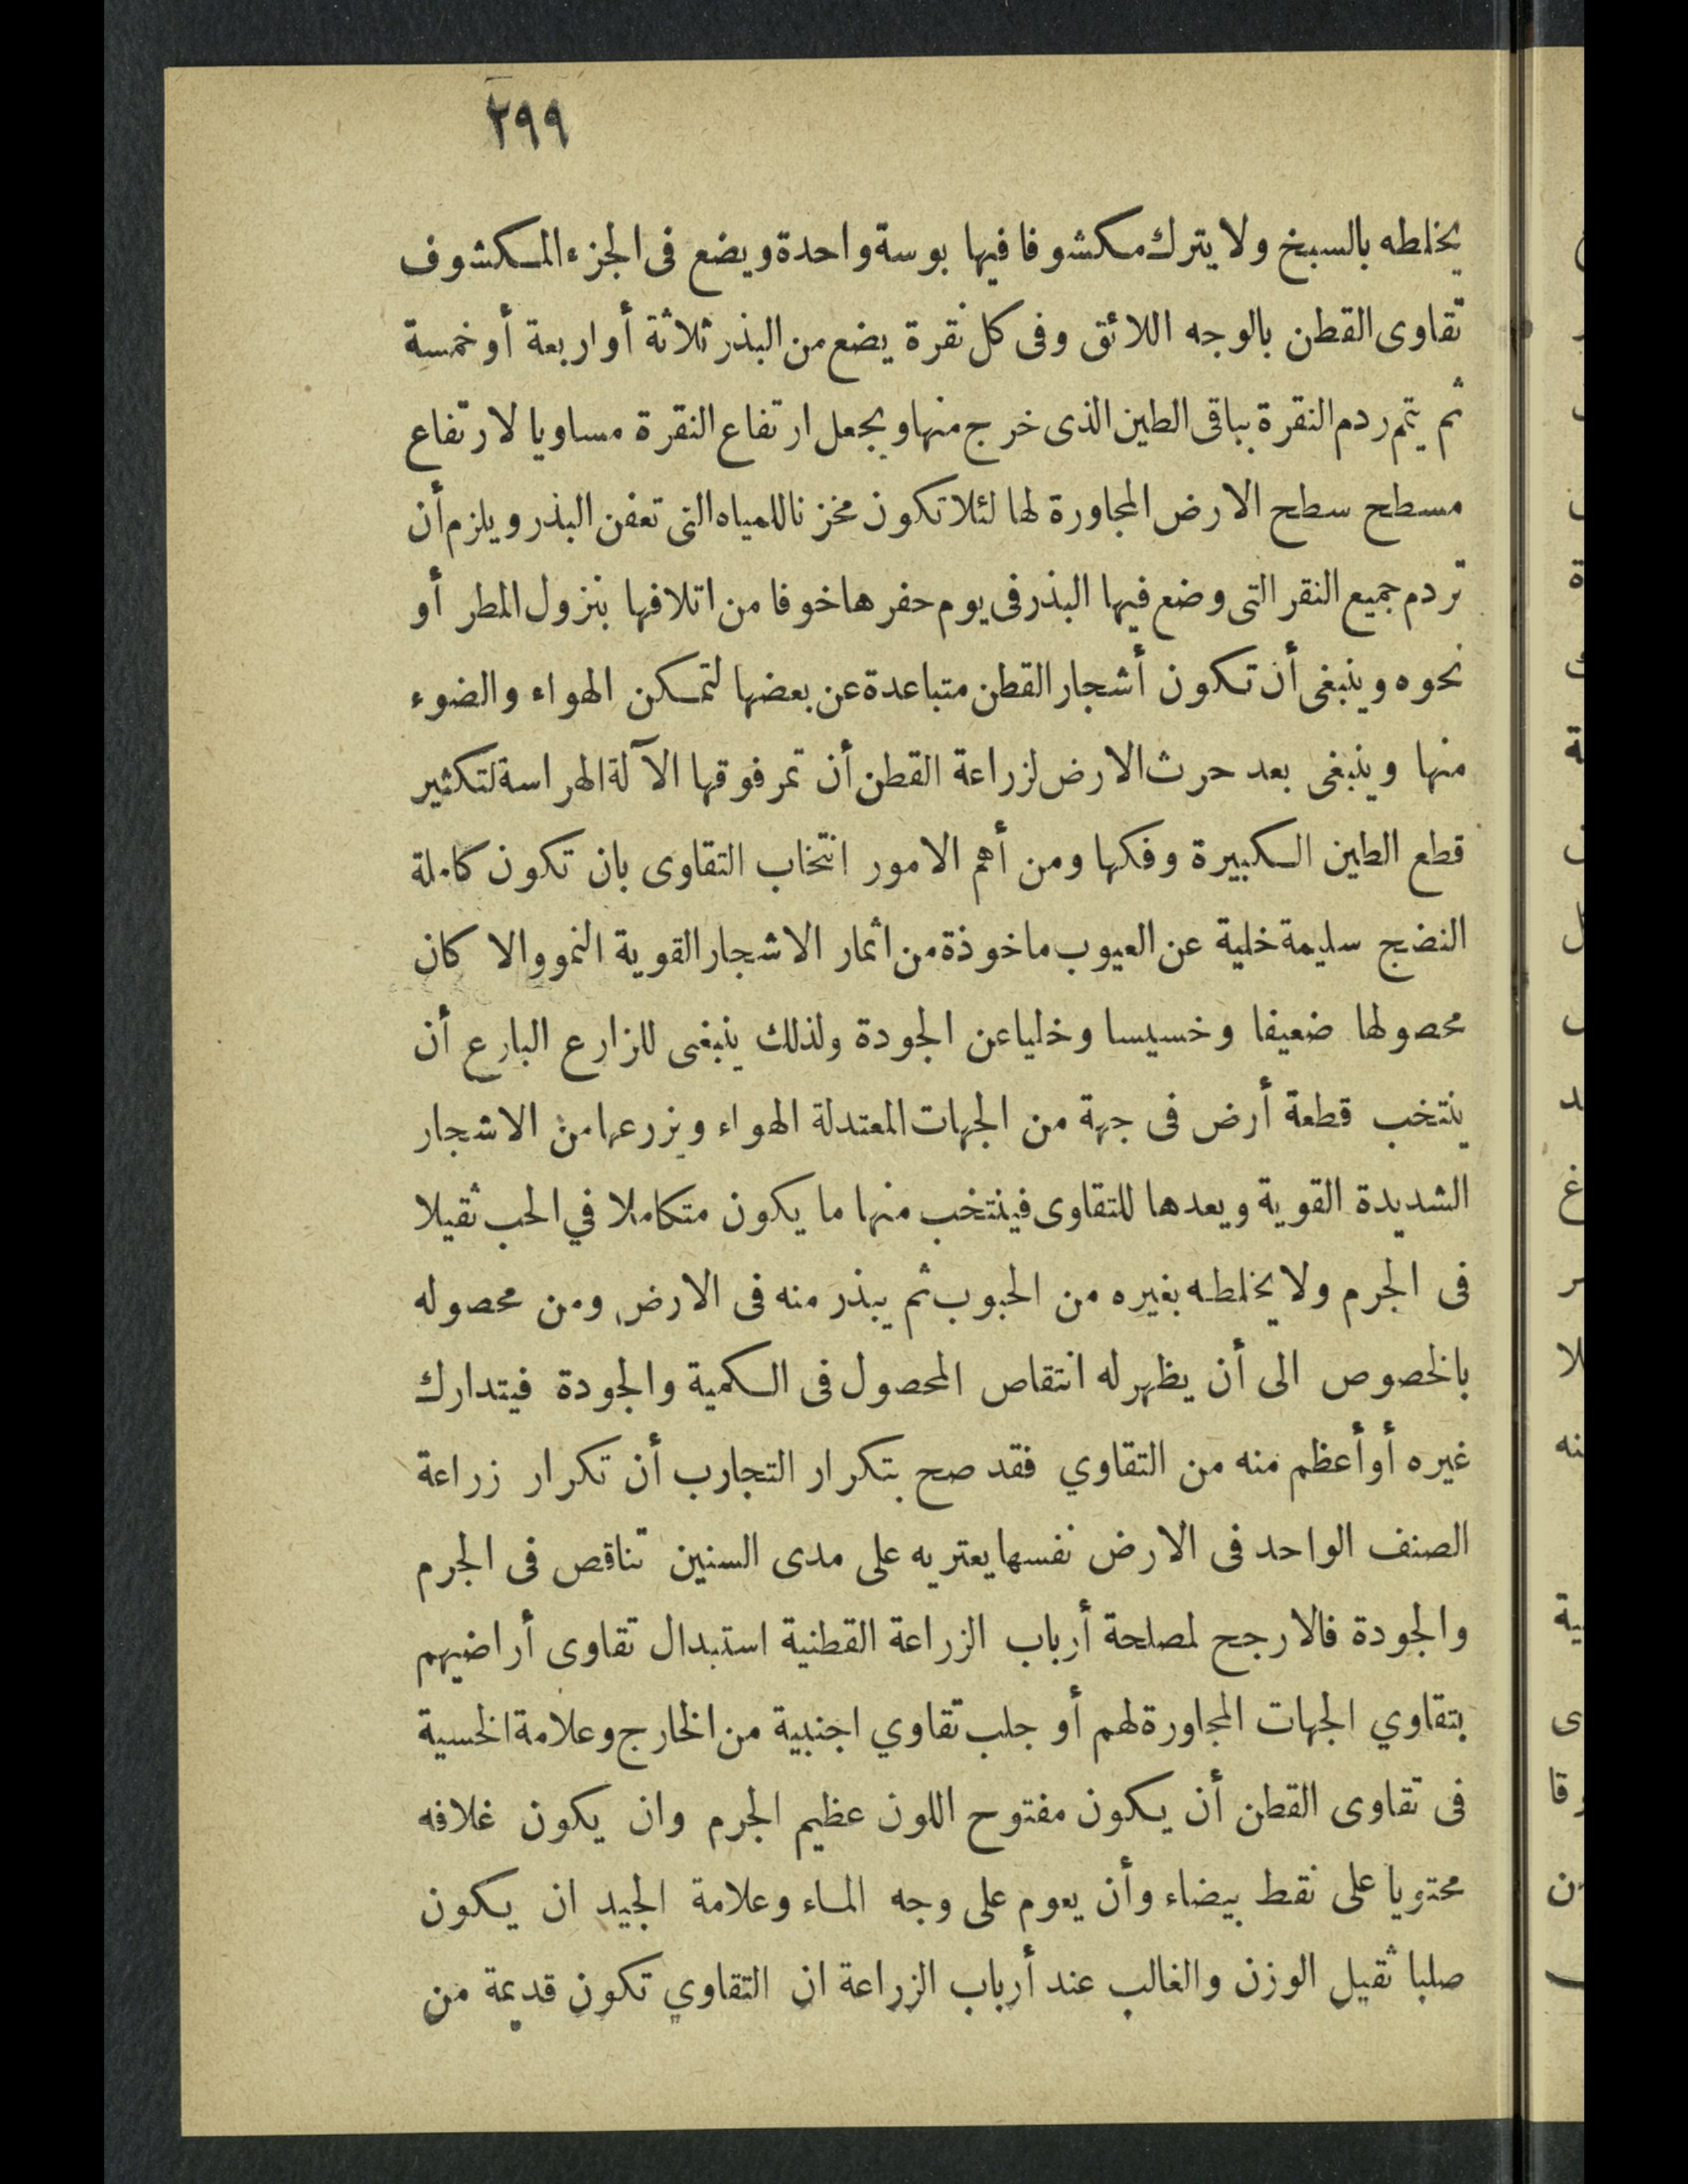 ٢٩٩
يخلطه بالسبخ ولا يترك مكشوفا فيها بوسة واحدة ويضع فى الجزء المكشوف
تقاوى القطن بالوجه اللائق وفى كل نقرة يضع من البذر ثلاثة أو اربعة أو خمسة
ثم يتم ردم النقرة بباقى الطين الذى خرج منها ويجعل ارتفاع النقرة مساويا لارتفاع
مسطح سطح الارض المجاورة لها لئلا تكون مخزنا للمياه التى تعفن البذر ويلزم أن
تردم جميع النقر التى وضع فيها البذر فى يوم حفرها خوفا من اتلافها بنزول المطر أو
نحوه وينبغى أن تكون أشجار القطن متباعدة عن بعضها لتمكن الهواء والضوء
منها وينبغى بعد حرث الارض لزراعة القطن أن تمر فوقها الآلة الهراسة لتكثير
قطع الطين الكبيرة وفكها ومن أهم الامور انتخاب التقاوى بان تكون كاملة
النضج سليمة خلية عن العيوب ماخوذة من اثمار الاشجار القوية النمو والا كان
محصولها ضعيفا وخسيسا وخليا عن الجودة ولذلك ينبغى للزارع البارع أن
ينتخب قطعة أرض فى جهة من الجهات المعتدلة الهواء ويزرعها من الاشجار
الشديدة القوية ويعدها للتقاوى فينتخب منها ما يكون متكاملا في الحب ثقيلا
فى الجرم ولا يخلطه بغيره من الحبوب ثم يبذر منه فى الارض ومن محصوله
بالخصوص الى أن يظهر له انتقاص المحصول فى الكمية والجودة فيتدارك
غيره أو أعظم منه من التقاوي فقد صح بتكرار التجارب أن تكرار زراعة
الصنف الواحد فى الارض نفسها يعتريه على مدى السنين تناقص فى الجرم
والجودة فالارجح لمصلحة أرباب الزراعة القطنية استبدال تقاوى أراضيهم
بتقاوي الجهات المجاورة لهم أو جلب تقاوي اجنبية من الخارج وعلامة الخسية
فى تقاوى القطن أن يكون مفتوح اللون عظيم الجرم وان يكون غلافه
محتويا على نقط بيضاء وأن يعوم على وجه الماء وعلامة الجيد ان يكون
صلبا ثقيل الوزن والغالب عند أرباب الزراعة ان التقاوي تكون قديمة من